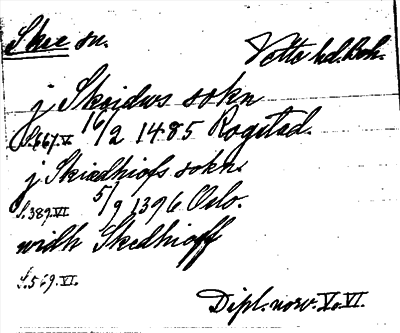 Skee sn. Vette hd. Boh.
j Skeidws sokn
S. 667. V. 16/2 1485 Rogstad.
j Skiædhiofs sokn.
S. 389. VI. 5/9 1396 Oslo.
widh Skedhioff
S. 569. VI.
Dipl. norv. V. VI.